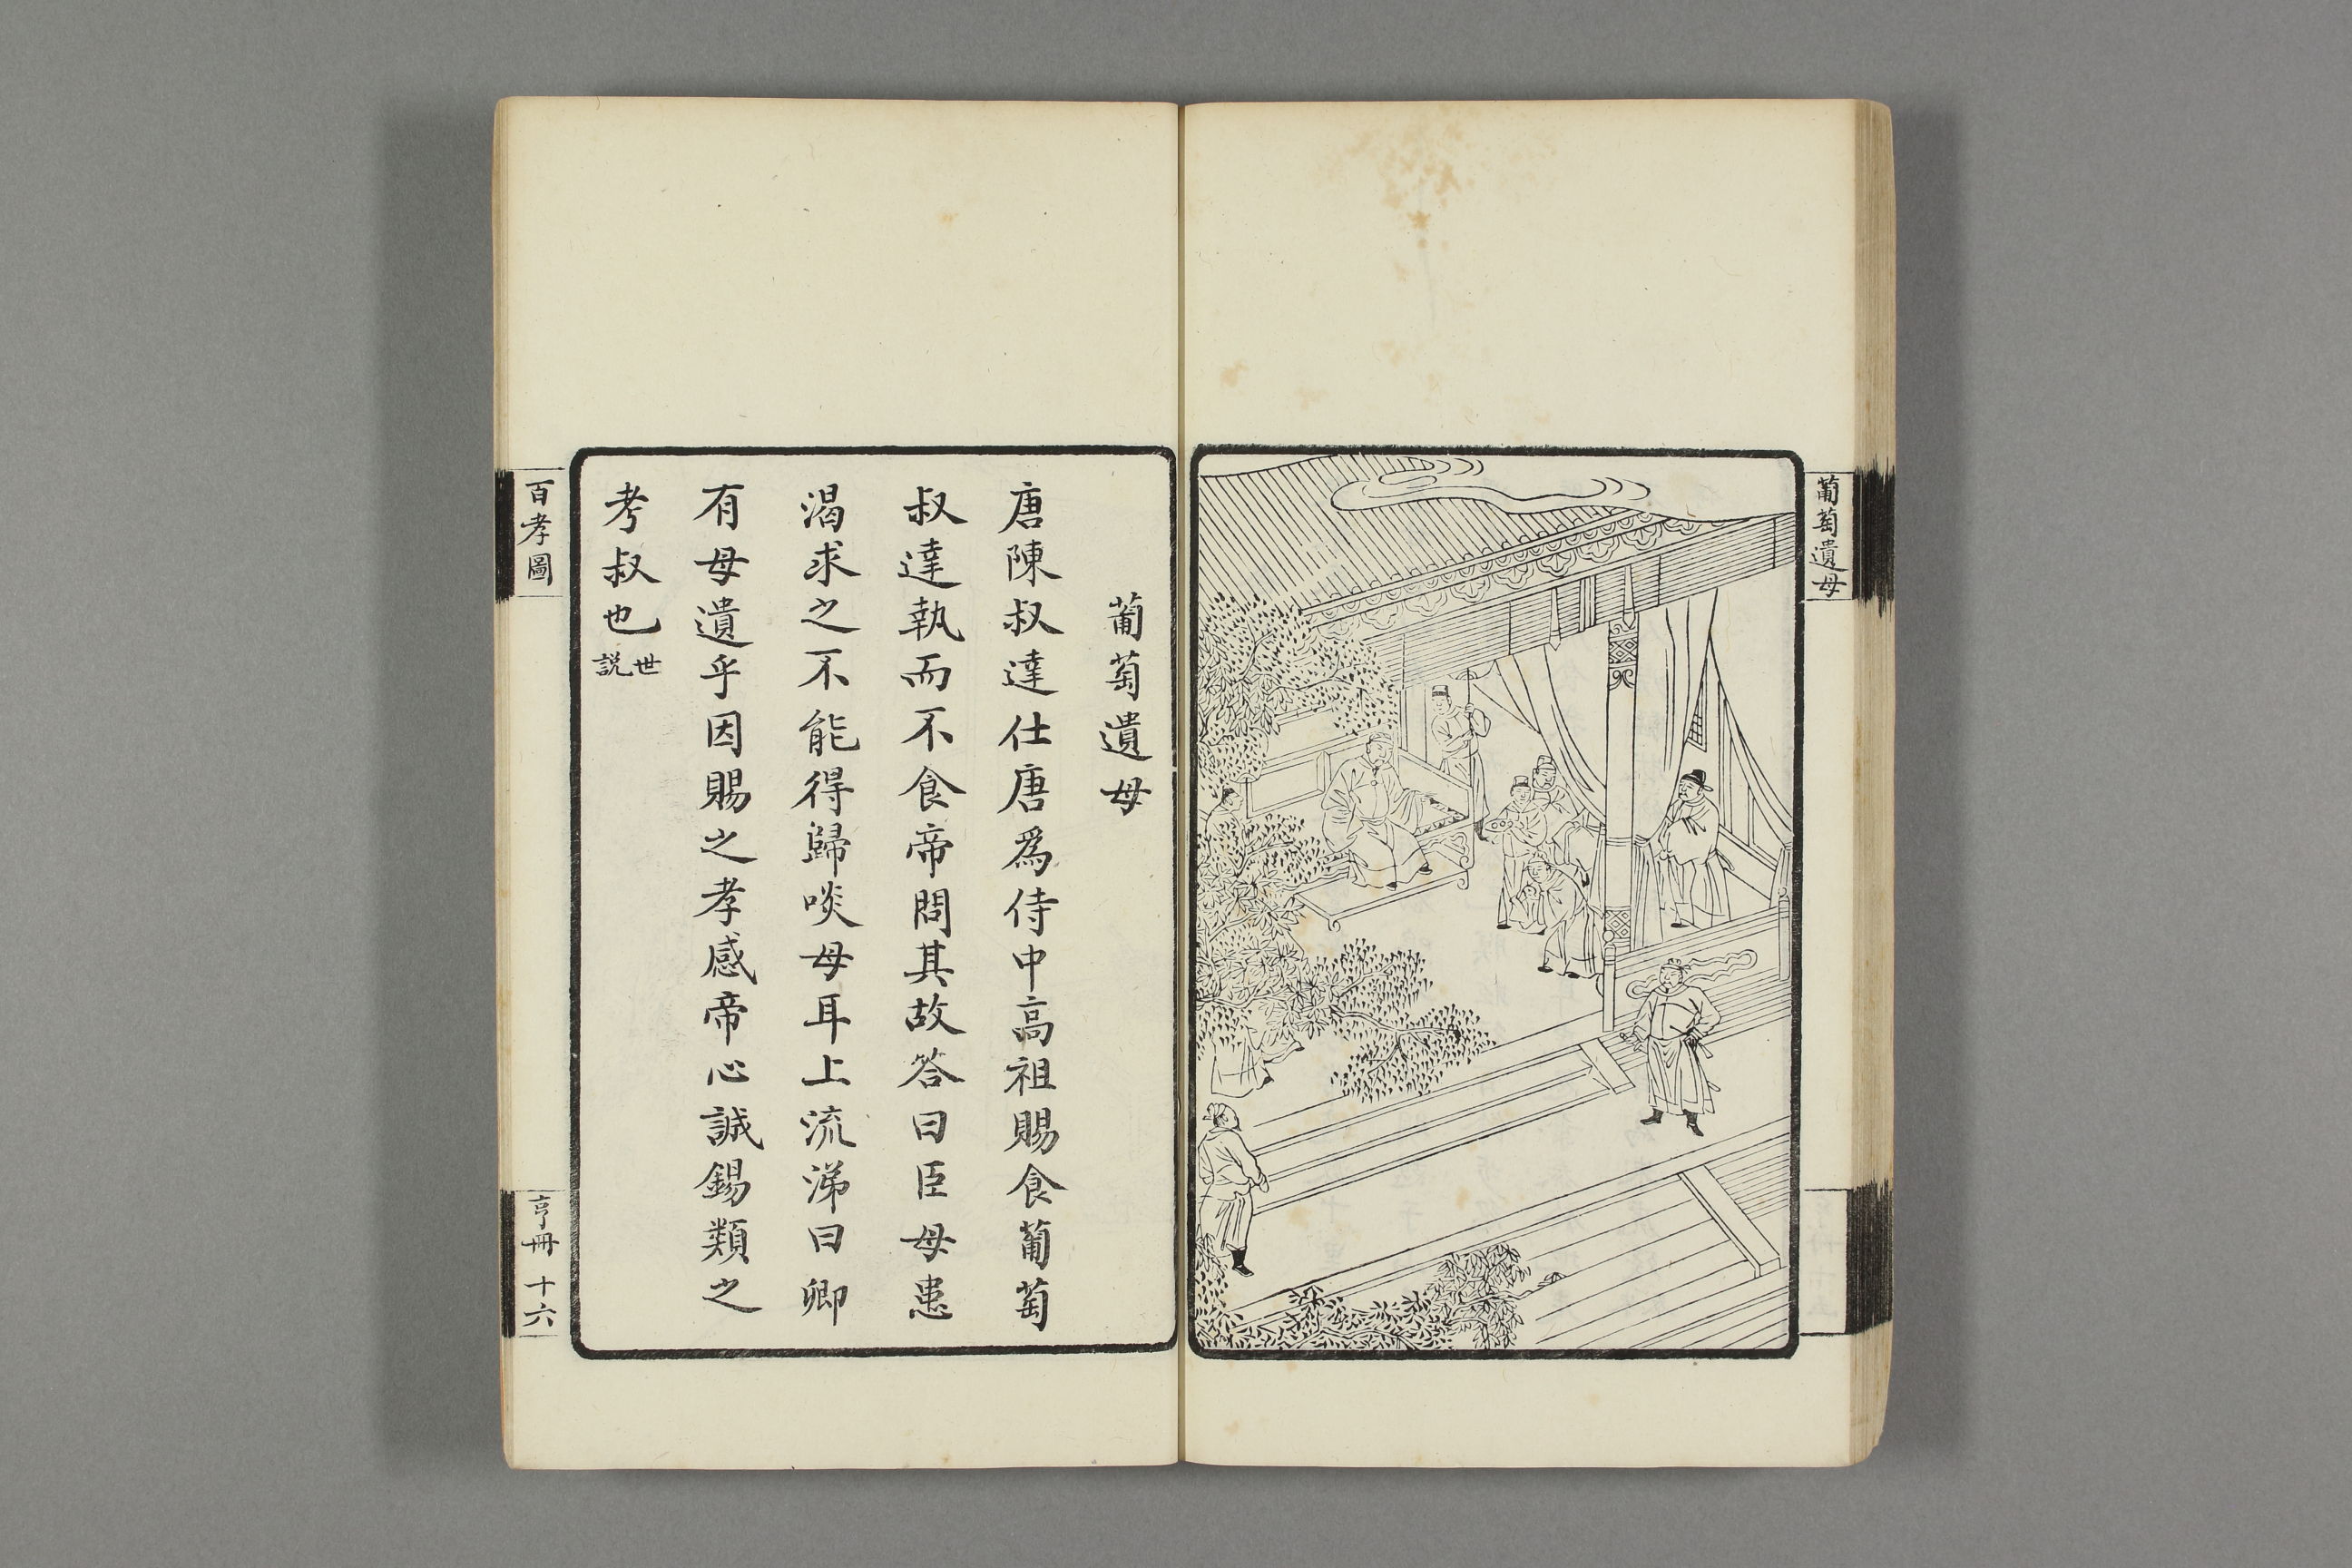 葡萄遺母
葡萄遺母
唐陳叔達仕唐爲侍中高祖賜食葡萄
叔達執而不食帝問其故答曰臣母患
渴求之不能得歸啖母耳上流涕曰卿
有母遺乎因賜之孝感帝心誠錫類之
考叔也世
説
百孝圖
亨冊 十六